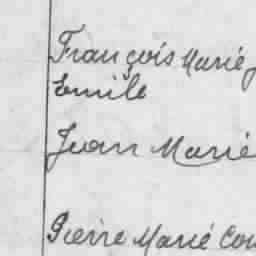 François Marie
Emile
Jean Marie
Pierre Marie